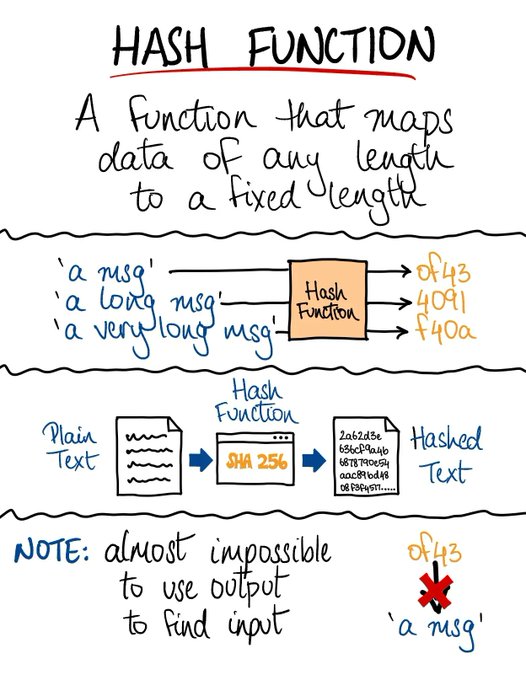 HASH FUNCTION
A function that maps
data of any length
to a fixed length
'a msg'
'a long msg'
'a very long msg'
Hash
Function
0f43
4091
f40a
Plain
Text
Hash
Function
SHA 256
2a62d3e
636cf9a4b
6878790e54
aac896d48
08f3f4517.....
Hashed
Text
NOTE: almost impossible
to use output
to find input
0f43
'a msg'